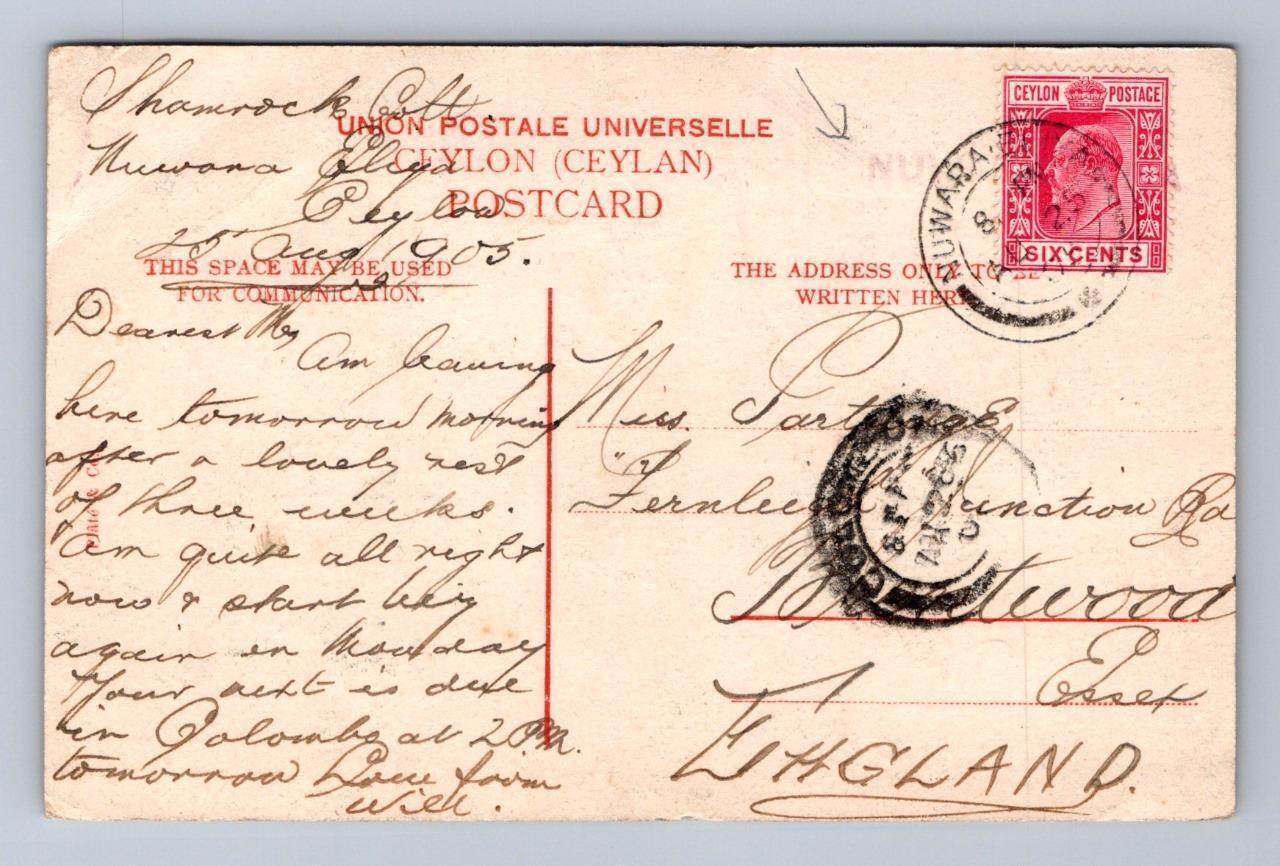 Shamrock Cott.
UNION POSTALE UNIVERSELLE
Nuwara Eliya
CEYLON (CEYLAN)
Ceylon
POSTCARD
25 Aug 1905.
THIS SPACE MAY BE USED
FOR COMMUNICATION.
Dearest
Am leaving
here tomorrow morning
after a lovely rest
of three weeks.
Am quite all right
now & start
again on Monday
Your next is due
in Colombo at 2 P.M.
tomorrow Love from
Will.
Plate & Co
CEYLON POSTAGE
SIX CENTS
NUWARA
8
25
NUW
A
THE ADDRESS ONLY TO BE
WRITTEN HERE
Miss. Partridge
"Fernlie" Junction Ro
Brentwood
Essex
ENGLAND.